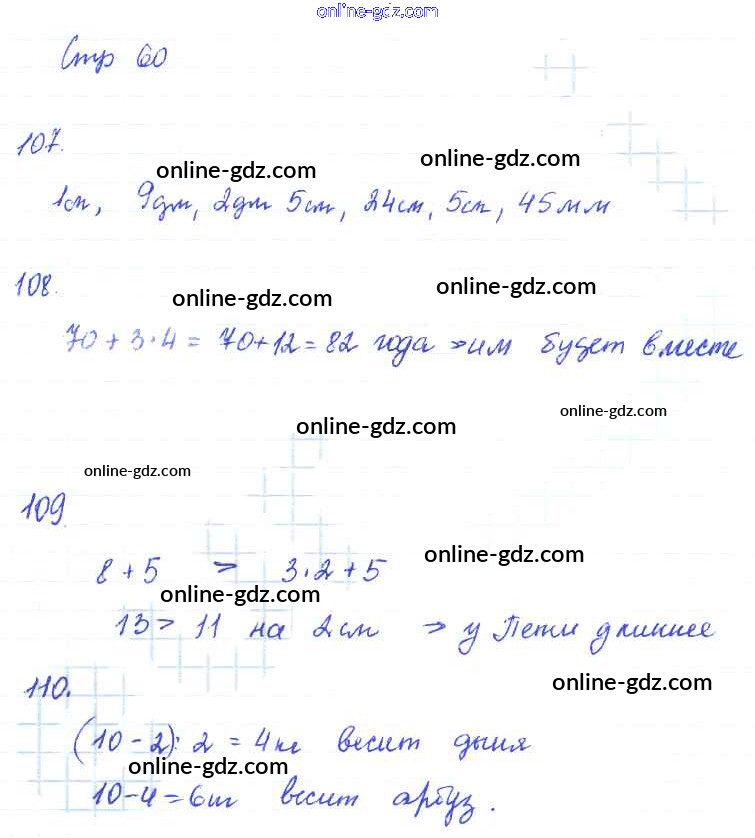 online-gdz.com
Стр 60
107.
online-gdz.com online-gdz.com
1см, 9дм, 2дм 5см, 24см, 5см, 45мм
108.
online-gdz.com online-gdz.com
70 + 3·4 = 70+12 = 82 года => им будет вместе
online-gdz.com
online-gdz.com
online-gdz.com
109
online-gdz.com
8 + 5 > 3·2 + 5
online-gdz.com
13 > 11 на 2см => у Пети длиннее
110.
online-gdz.com
(10 - 2) : 2 = 4кг весит дыня
online-gdz.com
10-4 = 6кг весит арбуз.